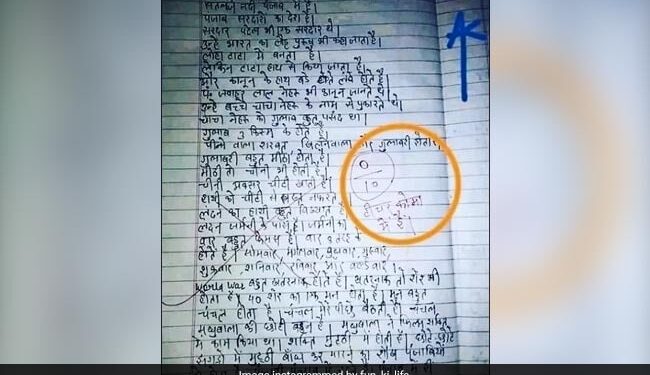 सतलुज नदी पंजाब में है।
पंजाब सरदारों का देश है।
सरदार पटेल भी एक सरदार थे।
उन्हें भारत का लौह पुरुष भी कहा जाता है।
लोहा टाटा में बनता है।
लेकिन टाटा हाथ से किया जाता है।
और कानून के हाथ बड़े होते लंबे होते है।
पं. जवाहर लाल नेहरू भी कानून जानते थे।
उन्हें बच्चे चाचा नेहरू के नाम से पुकारते थे।
चाचा नेहरू को गुलाब बहुत पसंद था।
गुलाब 3 किस्म के होते है।
गुलाबरी बहुत मीठी होती है।
मीठी तो चीनी भी होती है।
चीनी अक्सर चींटी खाती है।
हाथी को चींटी से नफरत है।
लंदन का हाथी बहुत विख्यात है।
लंदन जर्मनी के पास है। जर्मनी का
वार बहुत है। वार के
होते है। सोमवार, मंगलवार, बुधवार, गुरुवार,
शुक्रवार, शनिवार, रविवार, और वर्ल्ड वार।
World War बहुत खतरनाक होते है। खतरनाक तो शेर भी
होता है। 40 शेर का एक मन होता है। मन बहुत
चंचल होता है। चंचल मेरे पीछे बैठती है। चंचल
मधुबाला की छोटी बहन है। मधुबाला ने फिल्म शक्ति
में काम किया था। शक्ति मुट्ठी में होती है।
में मुट्ठी बाँध कर मारने का शौक पंजाबियों
0
10
टीचर कोमा
में है।
AK
Image instagrammed by fun_ki_life